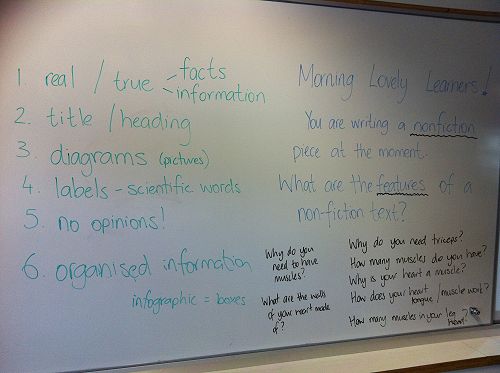 1. real / true - facts
- information
2. title / heading
3. diagrams (pictures)
4. labels - scientific words
5. no opinions!
6. organised information
infographic = boxes
Morning Lovely Learners!
You are writing a nonfiction
piece at the moment.
What are the features of a
non-fiction text?
Why do you
need to have
muscles?
What are the walls
of your heart made
of?
Why do you need triceps?
How many muscles do you have?
Why is your heart a muscle?
How does your heart /muscle work?
tongue
How many muscles in your leg?